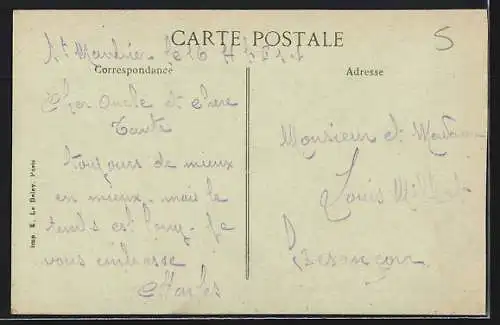 CARTE POSTALE
5
St Mandrier le 16
Correspondance
Adresse
Cher Oncle et chère
Tante
toujours de mieux
en mieux, mais le
temps est long. Je
vous embrasse
Charles
Monsieur et Madame
Louis
Besançon
Imp. E. Le Deley, Paris